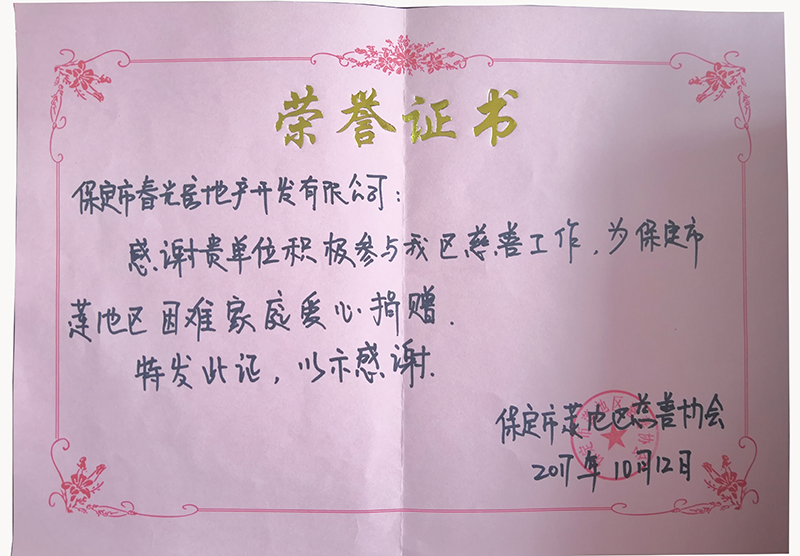 荣誉证书
保定市春光房地产开发有限公司：
感谢贵单位积极参与我区慈善工作，为保定市
莲池区困难家庭爱心捐赠.
特发此证，以示感谢.
保定市莲池区慈善协会
2017年10月12日